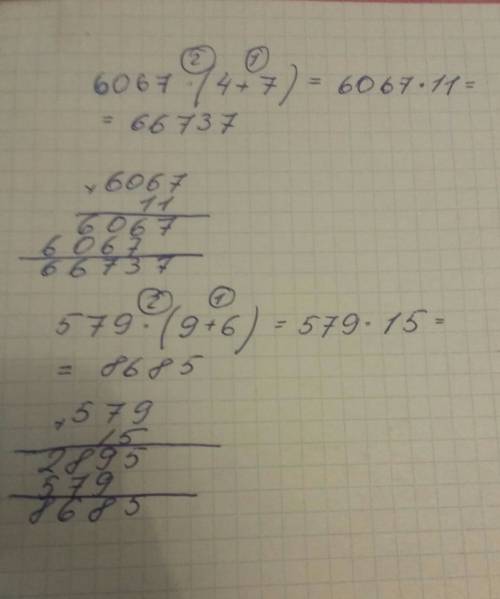 ② ①
6067 · (4+7) = 6067 · 11 =
= 66737
× 6067
11
6067
6067
66737
② ①
579 · (9+6) = 579 · 15 =
= 8685
× 579
15
2895
579
8685